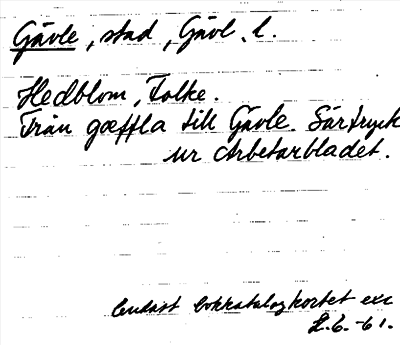 Gävle, stad, Gävl. l.
Hedblom, Folke.
Från gæffla till Gävle. Särtryck
ur Arbetarbladet.
Endast bokkatalogkortet exc
2.6.-61.